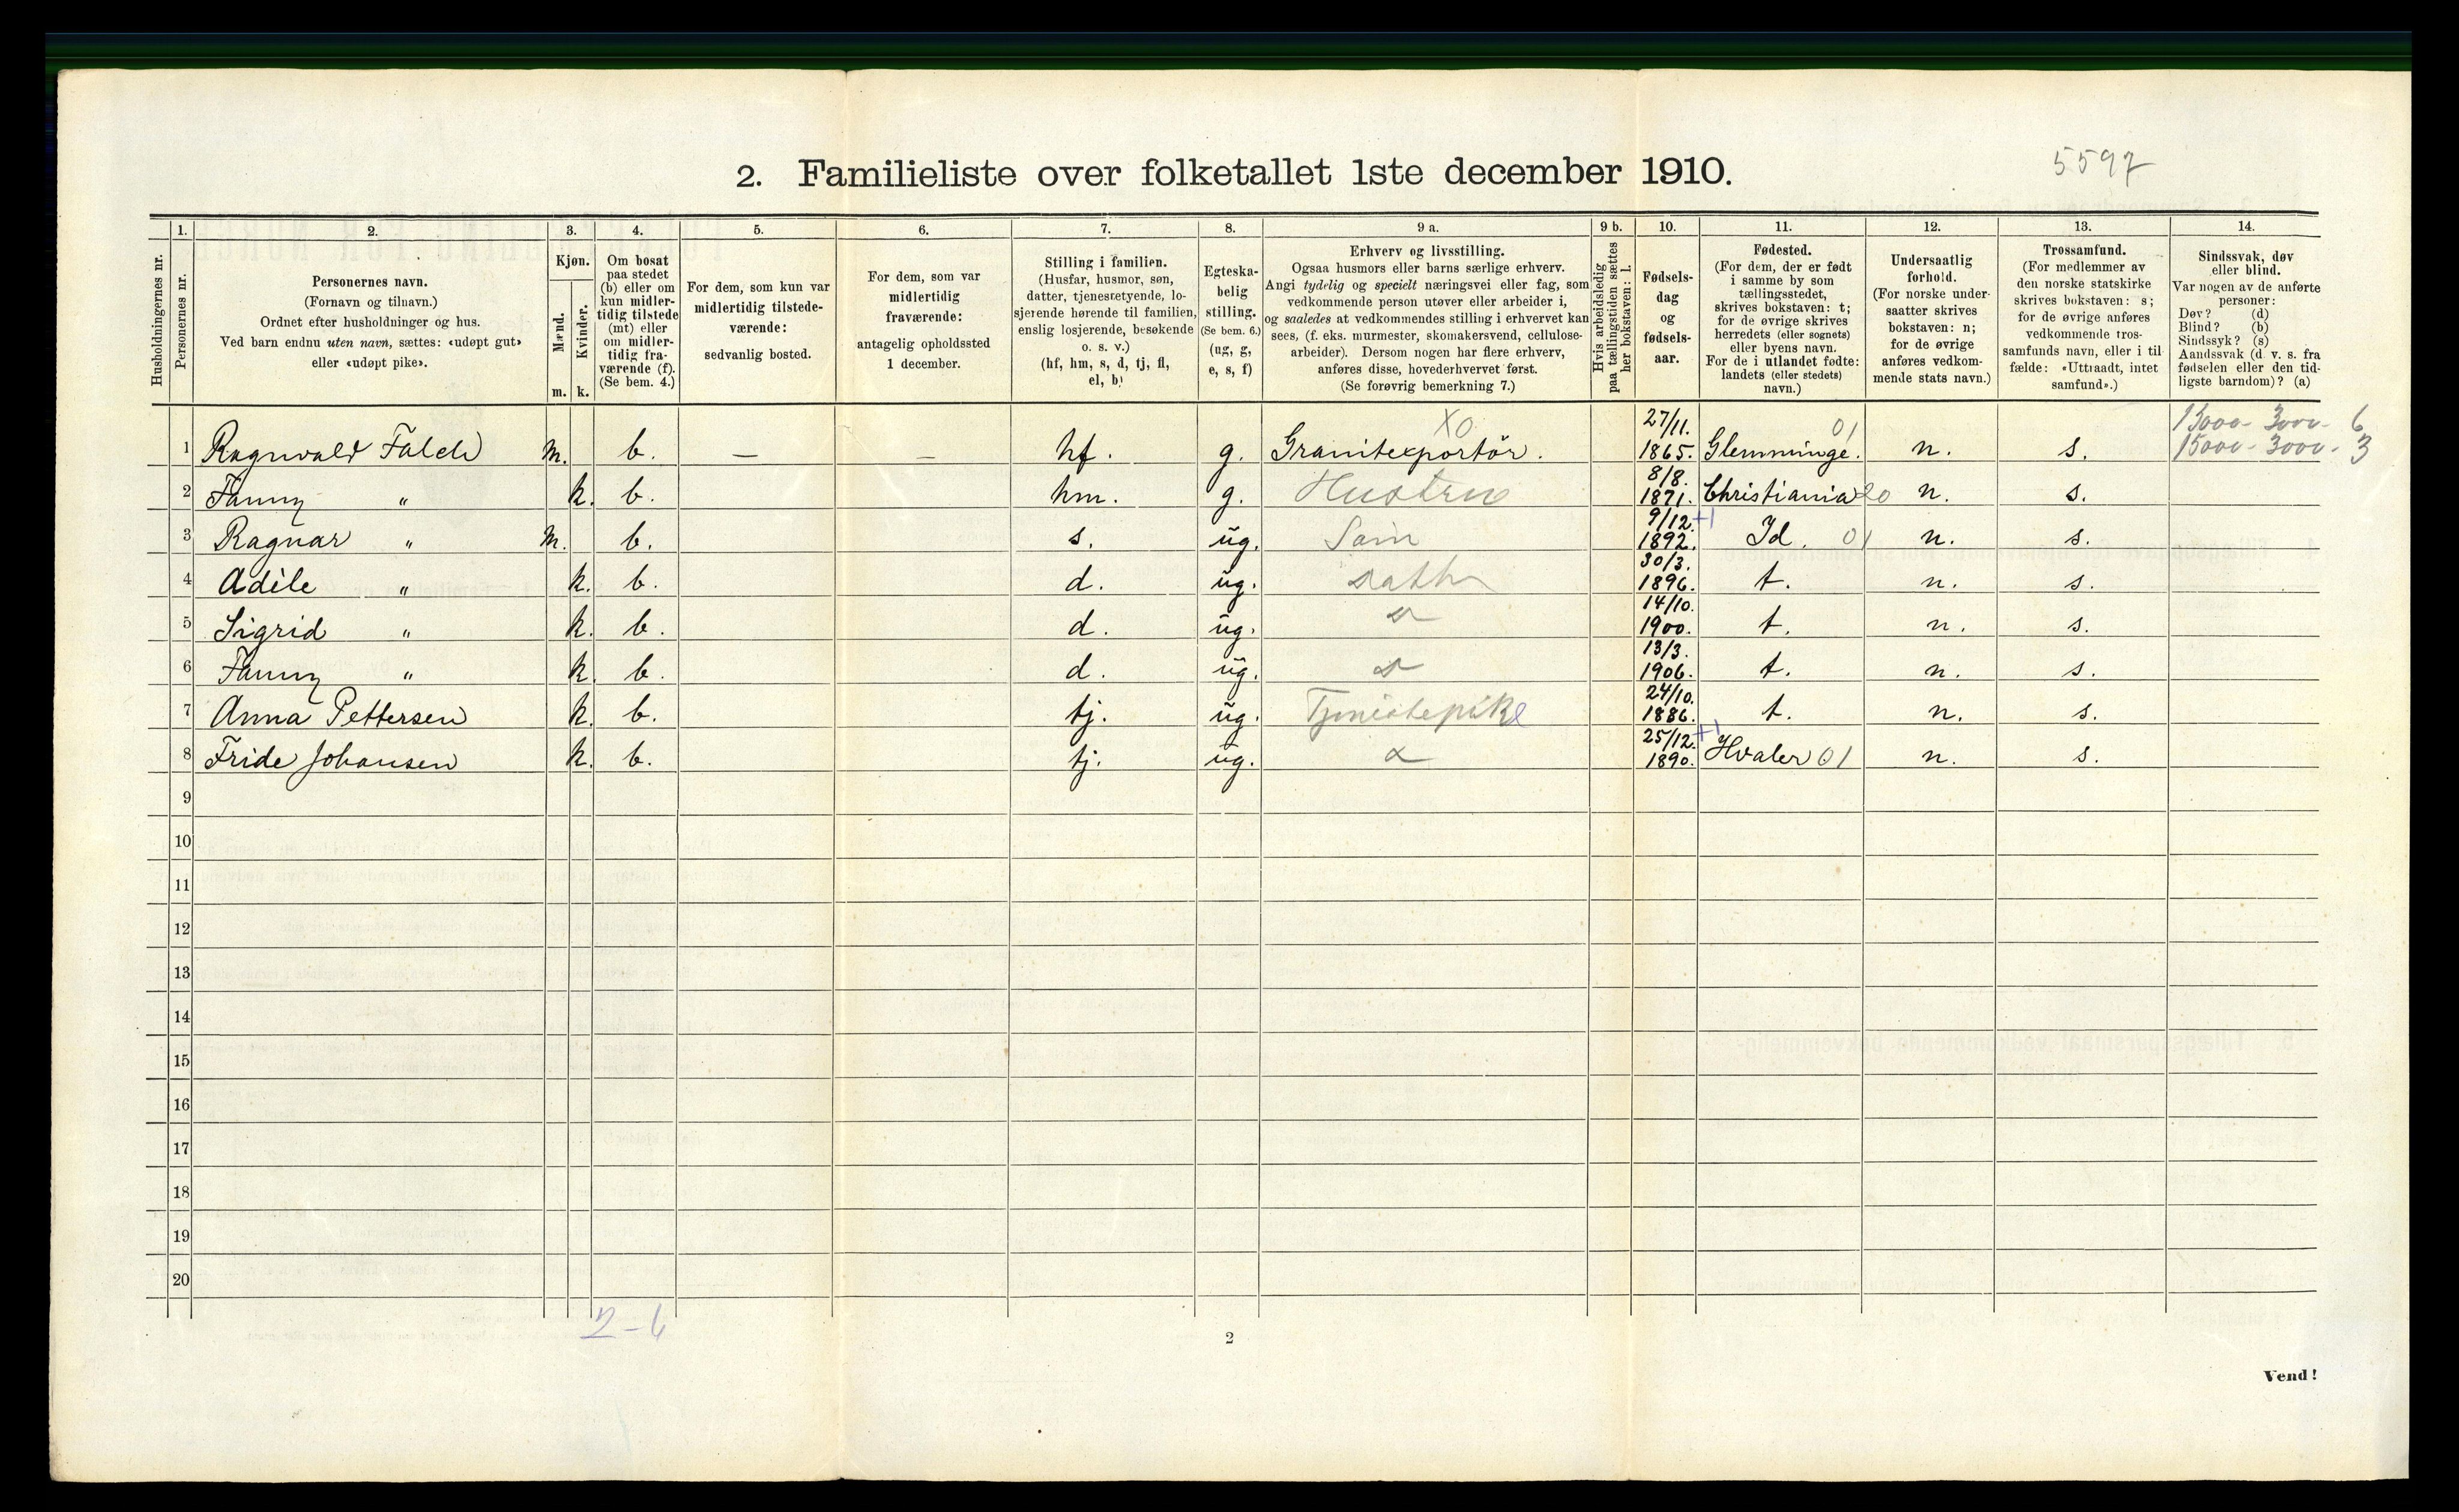 2. Familieliste over folketallet 1ste december 1910.
5597
Husholdningernes nr.
1.
Personernes nr.
2.
Personernes navn.
(Fornavn og tilnavn.)
Ordnet efter husholdninger og hus.
Ved barn endnu uten navn, sættes: «udøpt gut»
eller «udøpt pike».
3.
Kjøn.
Mænd.
Kvinder.
m. k.
4.
Om bosat
paa stedet
(b) eller om
kun midler-
tidig tilstede
(mt) eller
om midler-
tidig fra-
værende (f).
(Se bem. 4.)
5.
For dem, som kun var
midlertidig tilstede-
værende:
sedvanlig bosted.
6.
For dem, som var
midlertidig
fraværende:
antagelig opholdssted
1 december.
7.
Stilling i familien.
(Husfar, husmor, søn,
datter, tjenestetyende, lo-
sjerende hørende til familien,
enslig losjerende, besøkende
o. s. v.)
(hf, hm, s, d, tj, fl,
el, b)
8.
Egteska-
belig
stilling.
(Se bem. 6.)
(ug, g,
e, s, f)
9 a.
Erhverv og livsstilling.
Ogsaa husmors eller barns særlige erhverv.
Angi tydelig og specielt næringsvei eller fag, som
vedkommende person utøver eller arbeider i,
og saaledes at vedkommendes stilling i erhvervet kan
sees, (f. eks. murmester, skomakersvend, cellulose-
arbeider). Dersom nogen har flere erhverv,
anføres disse, hovederhvervet først.
(Se forøvrig bemerkning 7.)
9 b.
Hvis arbeidsledig
paa tællingstiden sættes
her bokstaven: l.
10.
Fødsels-
dag
og
fødsels-
aar.
11.
Fødested.
(For dem, der er født
i samme by som
tællingsstedet,
skrives bokstaven: t;
for de øvrige skrives
herredets (eller sognets)
eller byens navn.
For de i utlandet fødte:
landets (eller stedets)
navn.)
12.
Undersaatlig
forhold.
(For norske under-
saatter skrives
bokstaven: n;
for de øvrige
anføres vedkom-
mende stats navn.)
13.
Trossamfund.
(For medlemmer av
den norske statskirke
skrives bokstaven: s;
for de øvrige anføres
vedkommende tros-
samfunds navn, eller i til-
fælde: «Uttraadt, intet
samfund».)
14.
Sindssvak, døv
eller blind.
Var nogen av de anførte
personer:
Døv? (d)
Blind? (b)
Sindssyk? (s)
Aandssvak (d. v. s. fra
fødselen eller den tid-
ligste barndom)? (a)
X0 27/11. 01 15000 - 3000 - 6
1 Ragnvald Falch m. b. — — hf. g. Granitexportör. 1865. Glemminge. n. s. 15000 - 3000 - 3
8/8.
2 Fanny " k. b. hm. g. Hustru 1871. Christiania 20 n. s.
9/12. +1
3 Ragnar " m. b. s. ug. Søn 1892. Id. 01 n. s.
30/3.
4 Adèle " k. b. d. ug. datter 1896. t. n. s.
14/10.
5 Sigrid " k. b. d. ug. 1900. t. n. s.
13/3.
6 Fanny " k. b. d. ug. 1906. t. n. s.
24/10.
7 Anna Pettersen k. b. tj. ug. Tjenestepike 1886. t. n. s.
25/12. +1
8 Fride Johansen k. b. tj. ug. 1890. Hvaler 01 n. s.
9
10
11
12
13
14
15
16
17
18
19
20
2-6
2
Vend!